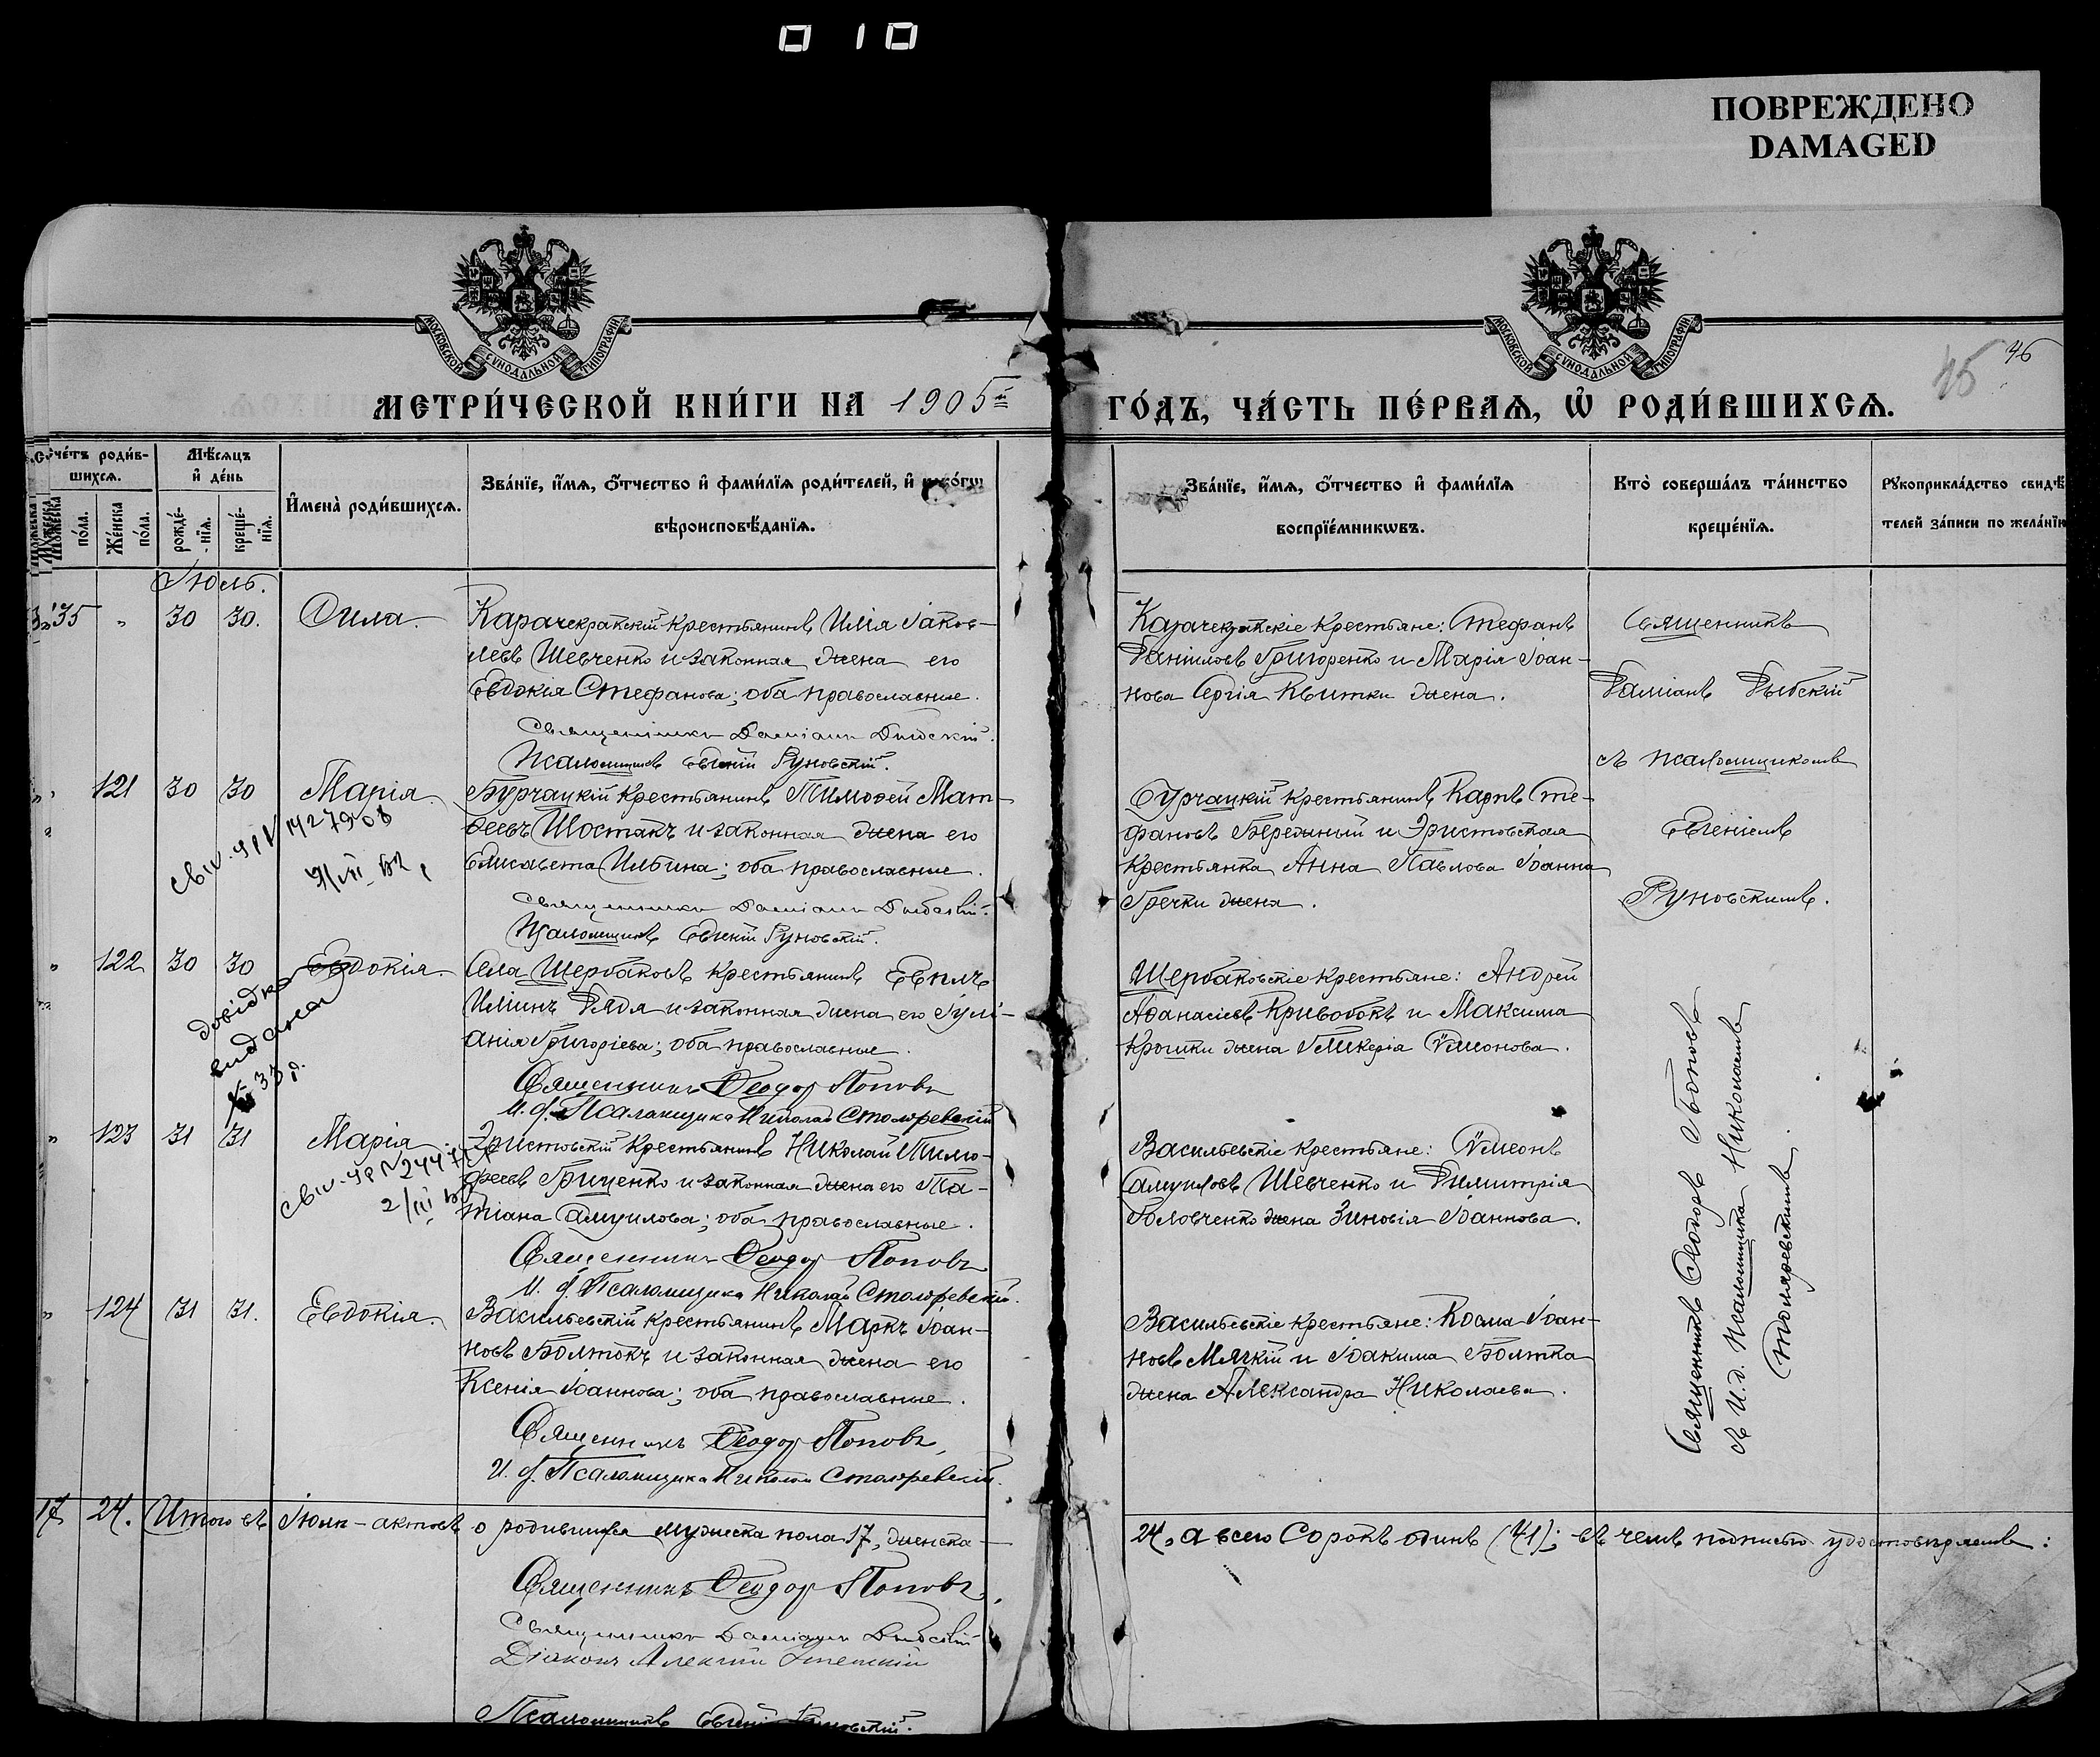 010
ПОВРЕЖДЕНО
DAMAGED
МОСКОВСКОЙ СУНОДАЛЬНОЙ ТИПОГРАФІИ
МОСКОВСКОЙ СУНОДАЛЬНОЙ ТИПОГРАФІИ
45 46
МЕТРИ́ЧЕСКОЙ КНИ́ГИ НА 1905й
ГО́ДЪ, ЧА́СТЬ ПЕ́РВАѦ, Ѡ҆ РОДИ́ВШИХСѦ.
Сче́тъ роди́вшихсѧ.
Мѣ́сѧцъ и҆ де́нь
Мꙋ́жеска по́ла.
Же́нска по́ла.
рожде́нїѧ.
креще́нїѧ.
И҆мена̀ роди́вшихсѧ.
Зва́нїе, и҆́мѧ, ѻ҆́тчество и҆ фами́лїѧ роди́телей, и҆
вѣроисповѣ́данїѧ.
Зва́нїе, и҆́мѧ, ѻ҆́тчество и҆ фами́лїѧ
воспрїе́мникѡвъ.
Кто̀ соверша́лъ та́инство
креще́нїѧ.
Рꙋкоприкла́дство свидѣ́
телей за́писи по жела́нїю
Іюль.
35 " 30 30. Сила.
Карачекракскій крестьянинъ Илія Іаков-
левъ Шевченко и законная жена его
Евдокія Стефанова; оба православные.
Священникъ Даміанъ Дыбскій.
Псаломщикъ Евгеній Руновскій.
Карачекракскіе крестьяне: Стефанъ
Даніиловъ Григоренко и Марія Іоан-
нова Сергія Квитки жена.
Священникъ
Даміанъ Дыбскій
съ псаломщикомъ
Евгеніемъ
Руновскимъ.
" 121 30 30 Марія.
Бурчацкій крестьянинъ Тимоѳей Мат-
ѳеевъ Шостакъ и законная жена его
Елисавета Ильина; оба православные.
Священникъ Даміанъ Дыбскій.
Псаломщикъ Евгеній Руновскій.
Бурчацкій крестьянинъ Карпъ Сте-
фановъ Бережный и Эристовская
крестьянка Анна Павлова Іоанна
Гречки жена.
" 122 30 30 Евдокія.
довідка
видана
33 р.
Села Щербаковъ крестьянинъ Евплъ
Иліинъ Дядя и законная жена его Іулі-
анія Григоріева; оба православные.
Священникъ Ѳеодоръ Поповъ
И. д. Псаломщика Николай Столяревскій
Щербаковскіе крестьяне: Андрей
Аѳанасіевъ Кривобокъ и Максима
Крошки жена Гликерія Сѵмеонова.
" 123 31 31 Марія.
Эристовскій крестьянинъ Николай Тимо-
ѳеевъ Гриценко и законная жена его Та-
тіана Самуилова; оба православные.
Священникъ Ѳеодоръ Поповъ
И. д. Псаломщика Николай Столяревскій.
Васильевскіе крестьяне: Сѵмеонъ
Самуиловъ Шевченко и Димитрія
Головченко жена Зиновія Іоаннова.
Священникъ Ѳеодоръ Поповъ
съ И. д. Псаломщика Николаемъ
Столяревскимъ.
" 124 31 31. Евдокія.
Васильевскій крестьянинъ Маркъ Іоан-
новъ Болтокъ и законная жена его
Ксенія Іоаннова; оба православные.
Священникъ Ѳеодоръ Поповъ,
И. д. Псаломщика Николай Столяревскій.
Васильевскіе крестьяне: Косма Іоан-
новъ Мягкій и Іоакима Болтка
жена Александра Николаева.
17 24. Итого въ Іюлѣ актовъ о родившихся мужеска пола 17, женска
24, а всего Сорокъ одинъ (41); въ чемъ подписью удостовѣряемъ:
Священникъ Ѳеодоръ Поповъ,
Священникъ Даміанъ Дыбскій
Діаконъ Алексій
Псаломщикъ Евгеній Руновскій.